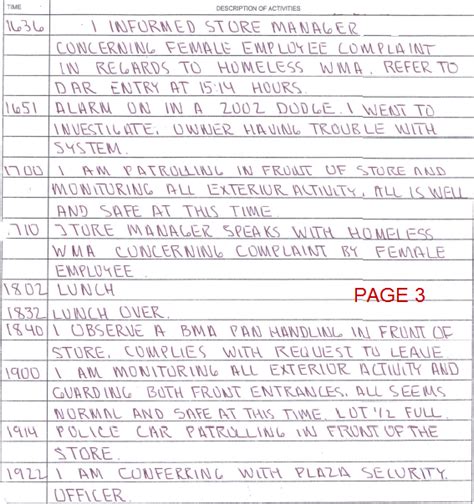 TIME DESCRIPTION OF ACTIVITIES
1636 I INFORMED STORE MANAGER
CONCERNING FEMALE EMPLOYEE COMPLAINT
IN REGARDS TO HOMELESS WMA. REFER TO
DAR ENTRY AT 15:14 HOURS.
1651 ALARM ON IN A 2002 DODGE. I WENT TO
INVESTIGATE. OWNER HAVING TROUBLE WITH
SYSTEM.
1700 I AM PATROLLING IN FRONT OF STORE AND
MONITORING ALL EXTERIOR ACTIVITY. ALL IS WELL
AND SAFE AT THIS TIME
1710 STORE MANAGER SPEAKS WITH HOMELESS
WMA CONCERNING COMPLAINT BY FEMALE
EMPLOYEE.
1802 LUNCH
PAGE 3
1832 LUNCH OVER.
1840 I OBSERVE A BMA PAN HANDLING IN FRONT OF
STORE. COMPLIES WITH REQUEST TO LEAVE
1900 I AM MONITORING ALL EXTERIOR ACTIVITY AND
GUARDING BOTH FRONT ENTRANCES. ALL SEEMS
NORMAL AND SAFE AT THIS TIME. LOT 1/2 FULL.
1914 POLICE CAR PATROLLING IN FRONT OF THE
STORE.
1922 I AM CONFERRING WITH PLAZA SECURITY
OFFICER.